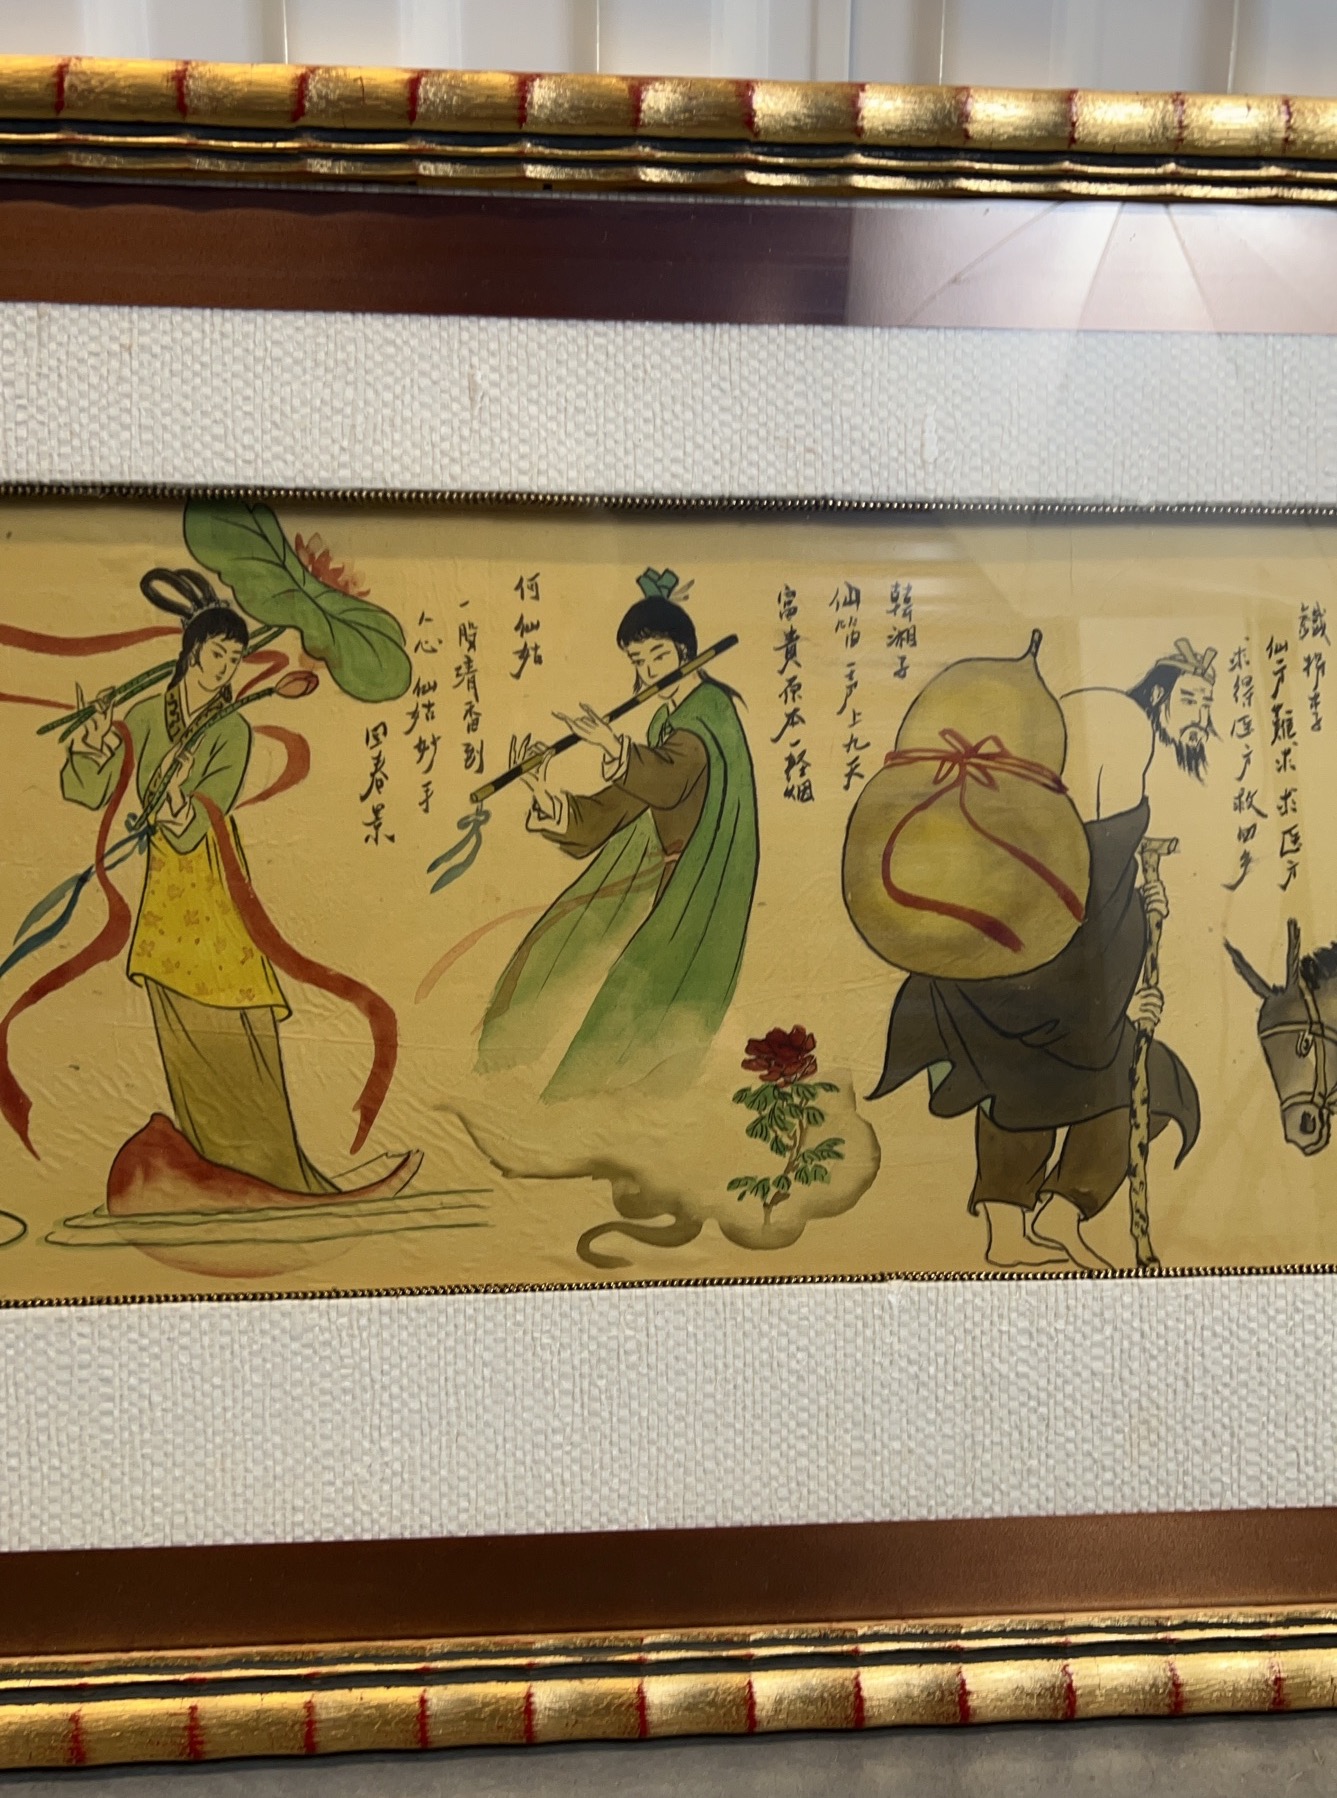 鐵拐李
仙方難求求医方
求得医方救田多
韓湘子
仙笛一声上九天
富貴原本一轻烟
何仙姑
一股清香到
人心 仙姑妙手
回春景